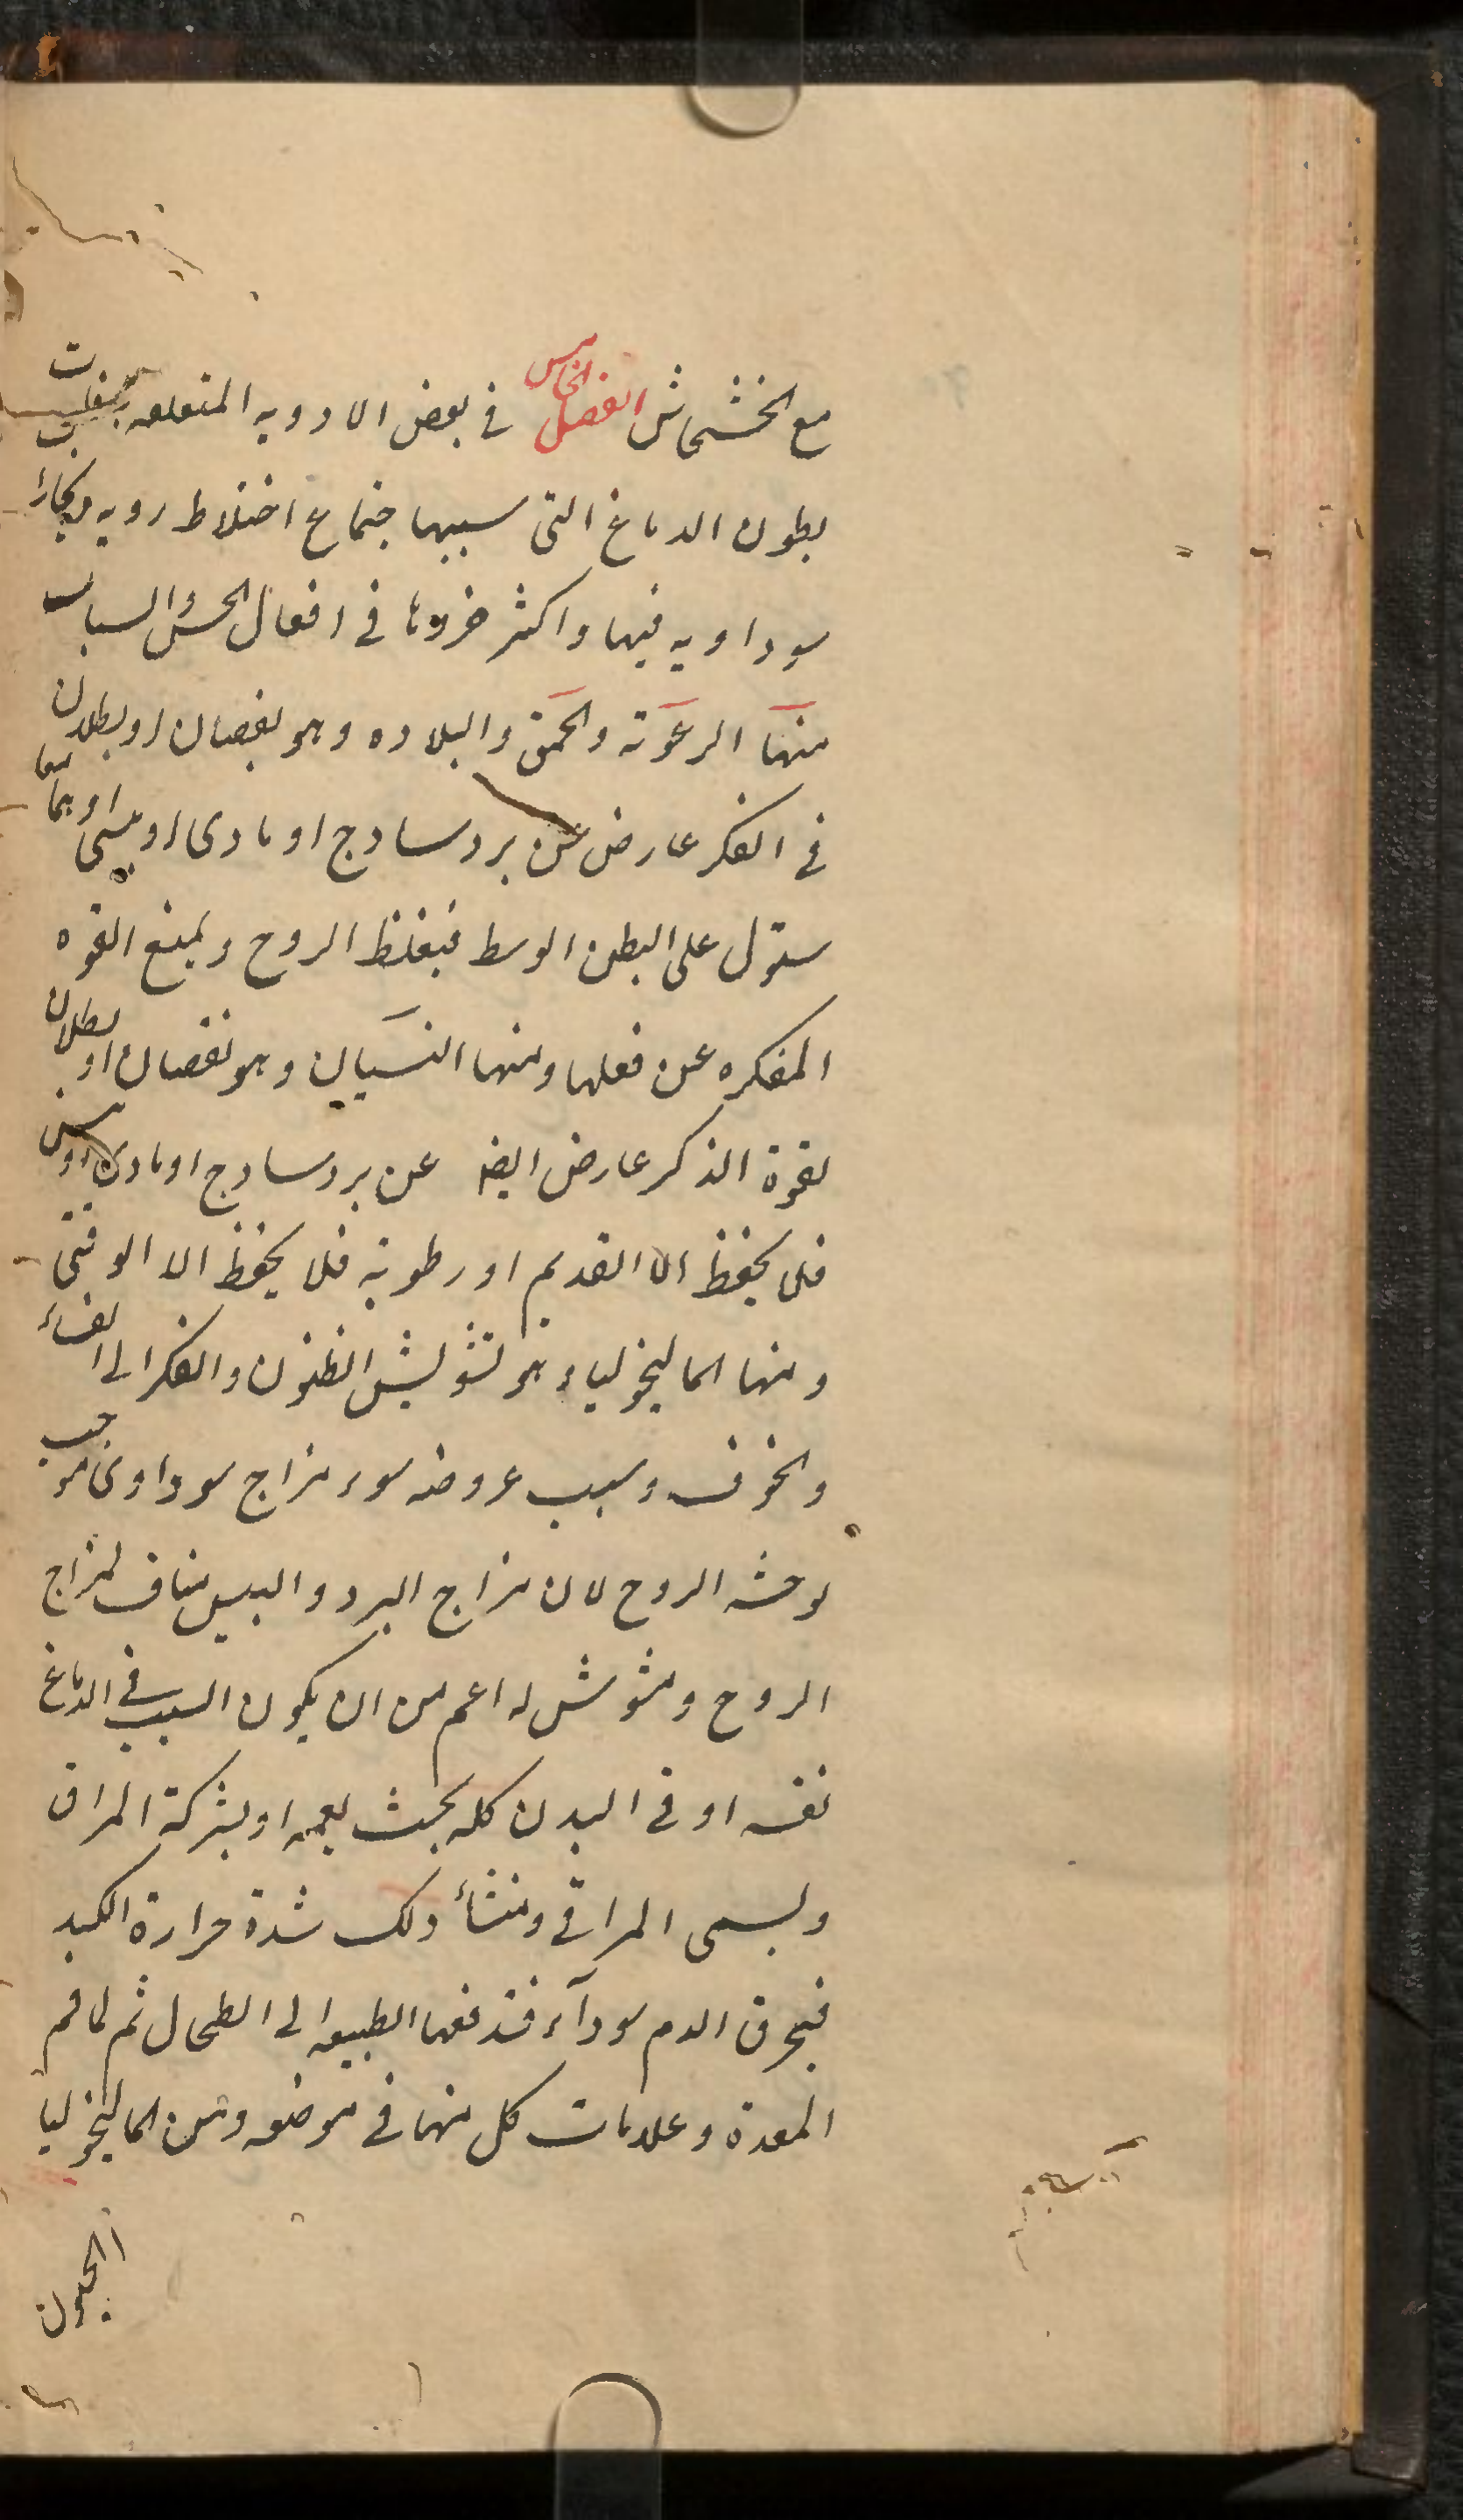 مع الخشخاش الفصل الخامس فى بعض الادويه المتعلقه
بطون الدماغ التى سببها اجتماع اخلاط رديه وبخارا
سوداويه فيها واكثر ضررها فى افعال الحس والسبات
منها الرعونة والحمق والبلاده وهو نقصان او بطلان
فى الفكر عارض عن برد ساذج او مادى او يبسى او هما معا
ستولى على البطن الوسط فيغلظ الروح ويمنع القوه
المفكره عن فعلها ومنها النسيان وهو نقصان او بطلان
لقوة الذكر عارض ايضا عن برد ساذج او مادى او يبس
فلا يحفظ الا القديم او رطوبة فلا يحفظ الا الوقتى
ومنها الماليخوليا وهو تشويش الظنون والفكر الى الفساد
والخوف وسبب عروضه سوء مزاج سوداوى موجب
لوحشه الروح لان مزاج البرد واليبس مناف لمزاج
الروح ومشوش له اعم من ان يكون السبب فى الدماغ
نفسه او فى البدن كله بحيث يعمه او بشركة المراق
ويسمى المراقى ومنشأ ذلك شدة حرارة الكبد
فيحرق الدم سوداء فتدفعها الطبيعه الى الطحال ثم لفم
المعدة وعلامات كل منها فى موضعه ومن الماليخوليا
الجنون